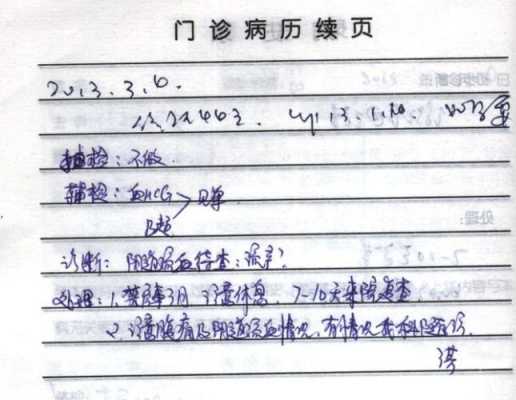 门诊病历续页
2013.3.6.
辅检：不做
辅检：血HCG 见单
B超
诊断：阴道流血待查：流产？
处理：1.禁房事1月 注意休息，7-10天来院复查
2.注意腹痛及阴道流血情况，有情况来院